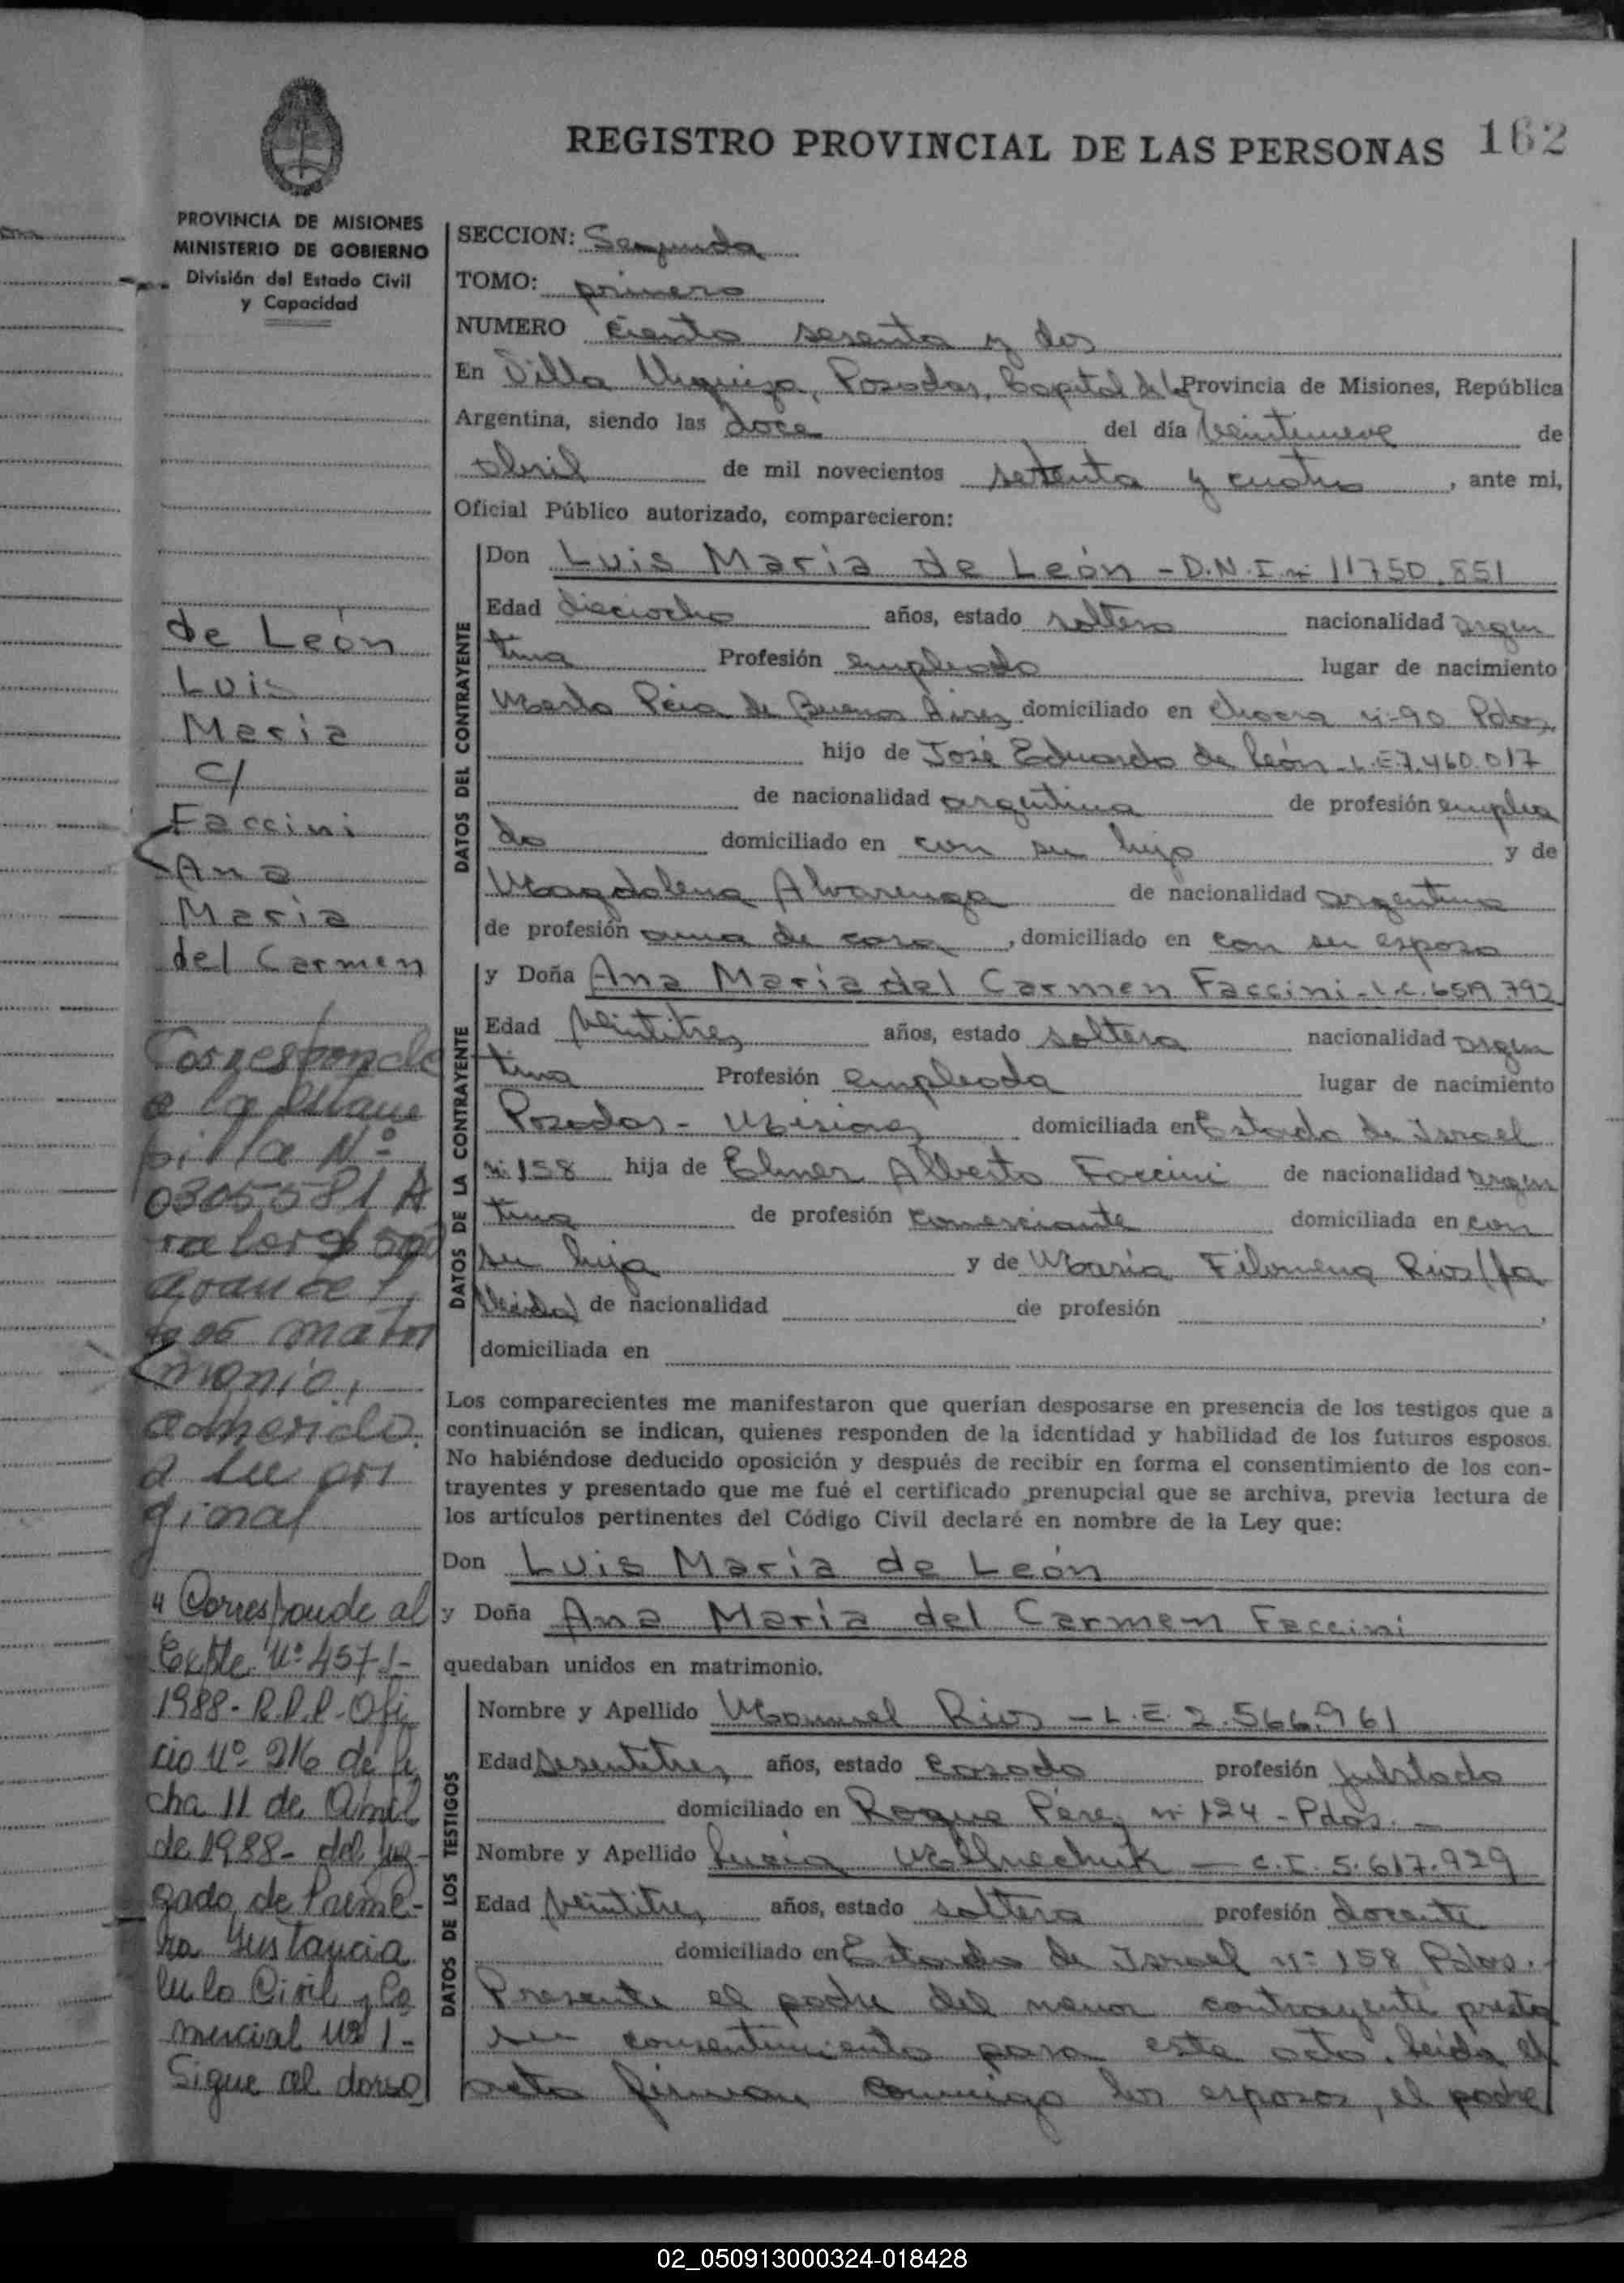 REGISTRO PROVINCIAL DE LAS PERSONAS 162
PROVINCIA DE MISIONES
MINISTERIO DE GOBIERNO
División del Estado Civil
y Capacidad
SECCION: Segunda
TOMO: primero
NUMERO ciento sesenta y dos
En Villa Urquiza, Posadas, Capital de la Provincia de Misiones, República
Argentina, siendo las doce del día veintinueve de
abril de mil novecientos setenta y cuatro, ante mi,
Oficial Público autorizado, comparecieron:
DATOS DEL CONTRAYENTE
Don Luis Maria de León - D.N.I. nº 11750.851
Edad dieciocho años, estado soltero nacionalidad argen
tina Profesión empleado lugar de nacimiento
Merlo Pcia de Buenos Aires domiciliado en Chacra nº 90 Pdas
hijo de José Eduardo de León - L.E 7.460.017
de nacionalidad argentina de profesión emplea
do domiciliado en con su hijo y de
Magdalena Alvarenga de nacionalidad argentina
de profesión ama de casa, domiciliado en con su esposo
DATOS DE LA CONTRAYENTE
y Doña Ana Maria del Carmen Faccini - L.C. 6519.792
Edad veintitres años, estado soltera nacionalidad argen
tina Profesión empleada lugar de nacimiento
Posadas - Misiones domiciliada en Estado de Israel
nº 158 hija de Elmer Alberto Faccini de nacionalidad argen
tina de profesión comerciante domiciliada en con
su hija y de María Filomena Rios (fa
llecida) de nacionalidad de profesión ,
domiciliada en
Los comparecientes me manifestaron que querían desposarse en presencia de los testigos que a
continuación se indican, quienes responden de la identidad y habilidad de los futuros esposos.
No habiéndose deducido oposición y después de recibir en forma el consentimiento de los con-
trayentes y presentado que me fué el certificado prenupcial que se archiva, previa lectura de
los artículos pertinentes del Código Civil declaré en nombre de la Ley que:
Don Luis Maria de León
y Doña Ana Maria del Carmen Faccini
quedaban unidos en matrimonio.
DATOS DE LOS TESTIGOS
Nombre y Apellido Manuel Rios - L.E. 2.566.961
Edad sesentitres años, estado casado profesión jubilado
domiciliado en Roque Pérez nº 124 - Pdas. -
Nombre y Apellido Lucia - C.I. 5.617.929
Edad veintitres años, estado soltera profesión docente
domiciliado en Estado de Israel nº 158 Pdas.
Presente el padre del menor contrayente presta
su consentimiento para este acto. Leida el
acta firman conmigo los esposos, el padre
de León
Luis
Maria
c/
Faccini
Ana
Maria
del Carmen
Corresponde
a la Estam
pilla Nº
0305581 A
valor $ 500
arancel
matri
monio,
adherido
a su ori
ginal
"Corresponde al
Expte. Nº 457-J-
1988 - R.P.P. - Ofi
cio Nº 216 de fe
cha 11 de Abril
de 1988 - del Juz-
gado de Prime-
ra Instancia
en lo Civil y Co
mercial Nº 1 -
Sigue al dorso
02_050913000324-018428